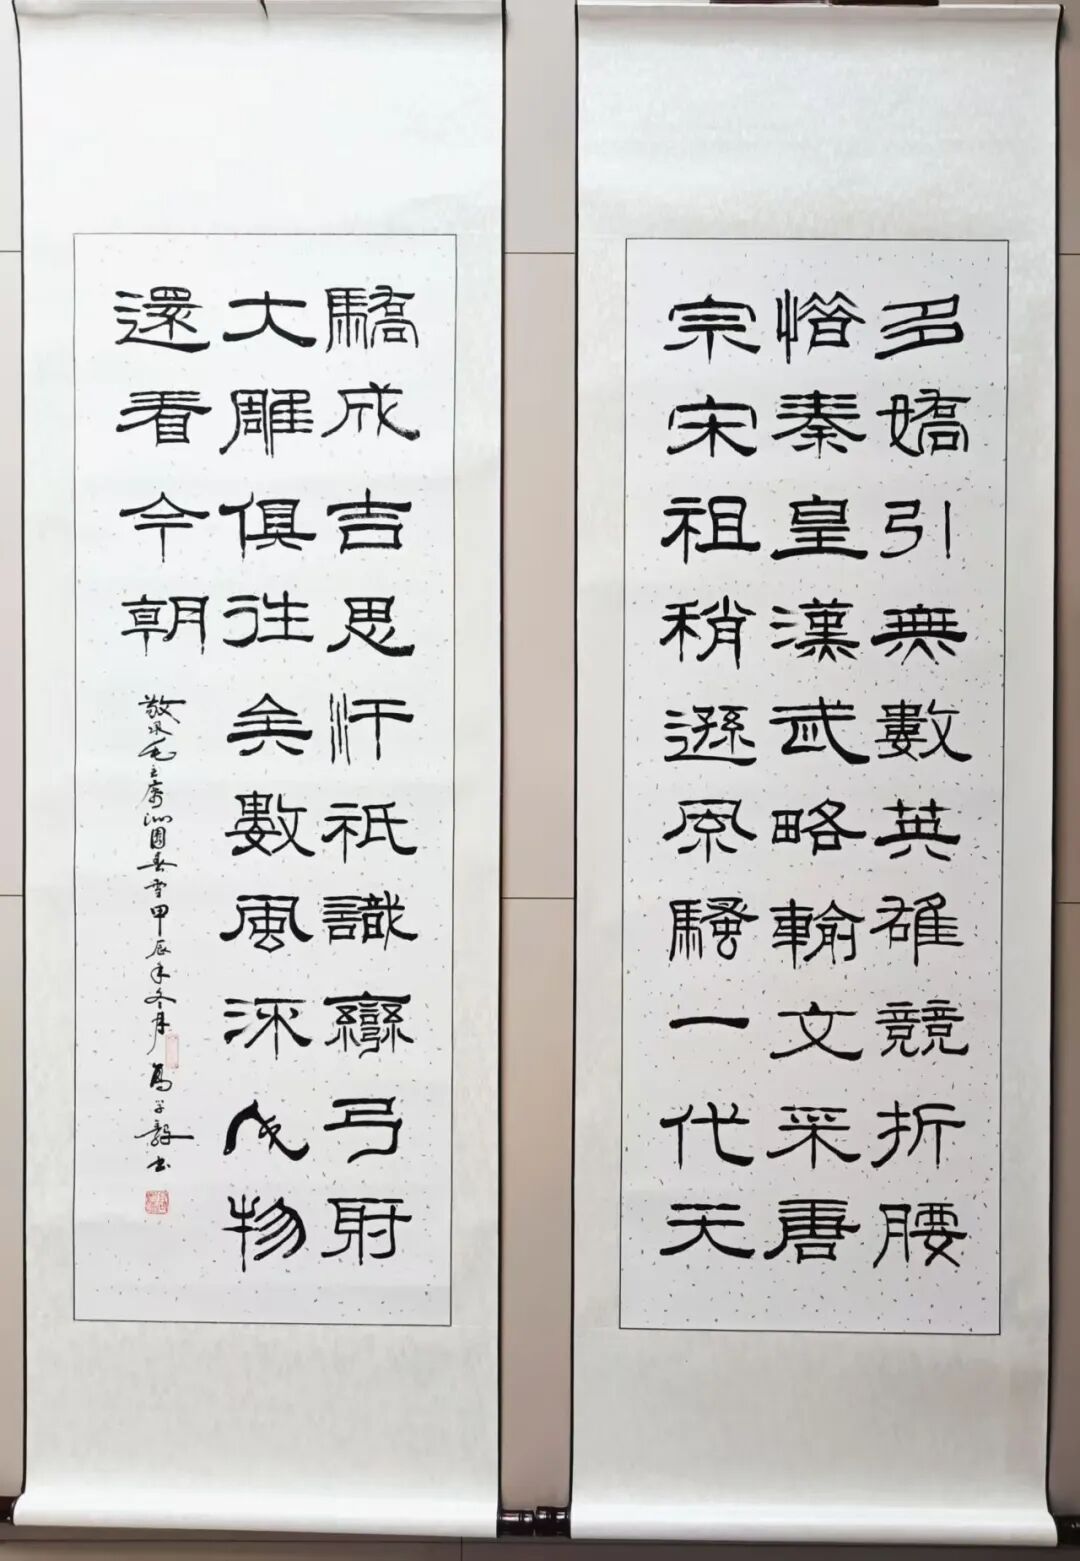 多嬌引無數英雄競折腰
惜秦皇漢武略輸文采唐
宗宋祖稍遜風騷一代天
驕成吉思汗祇識彎弓射
大雕俱往矣數風流人物
還看今朝
敬录毛主席沁園春雪甲辰年冬月
书